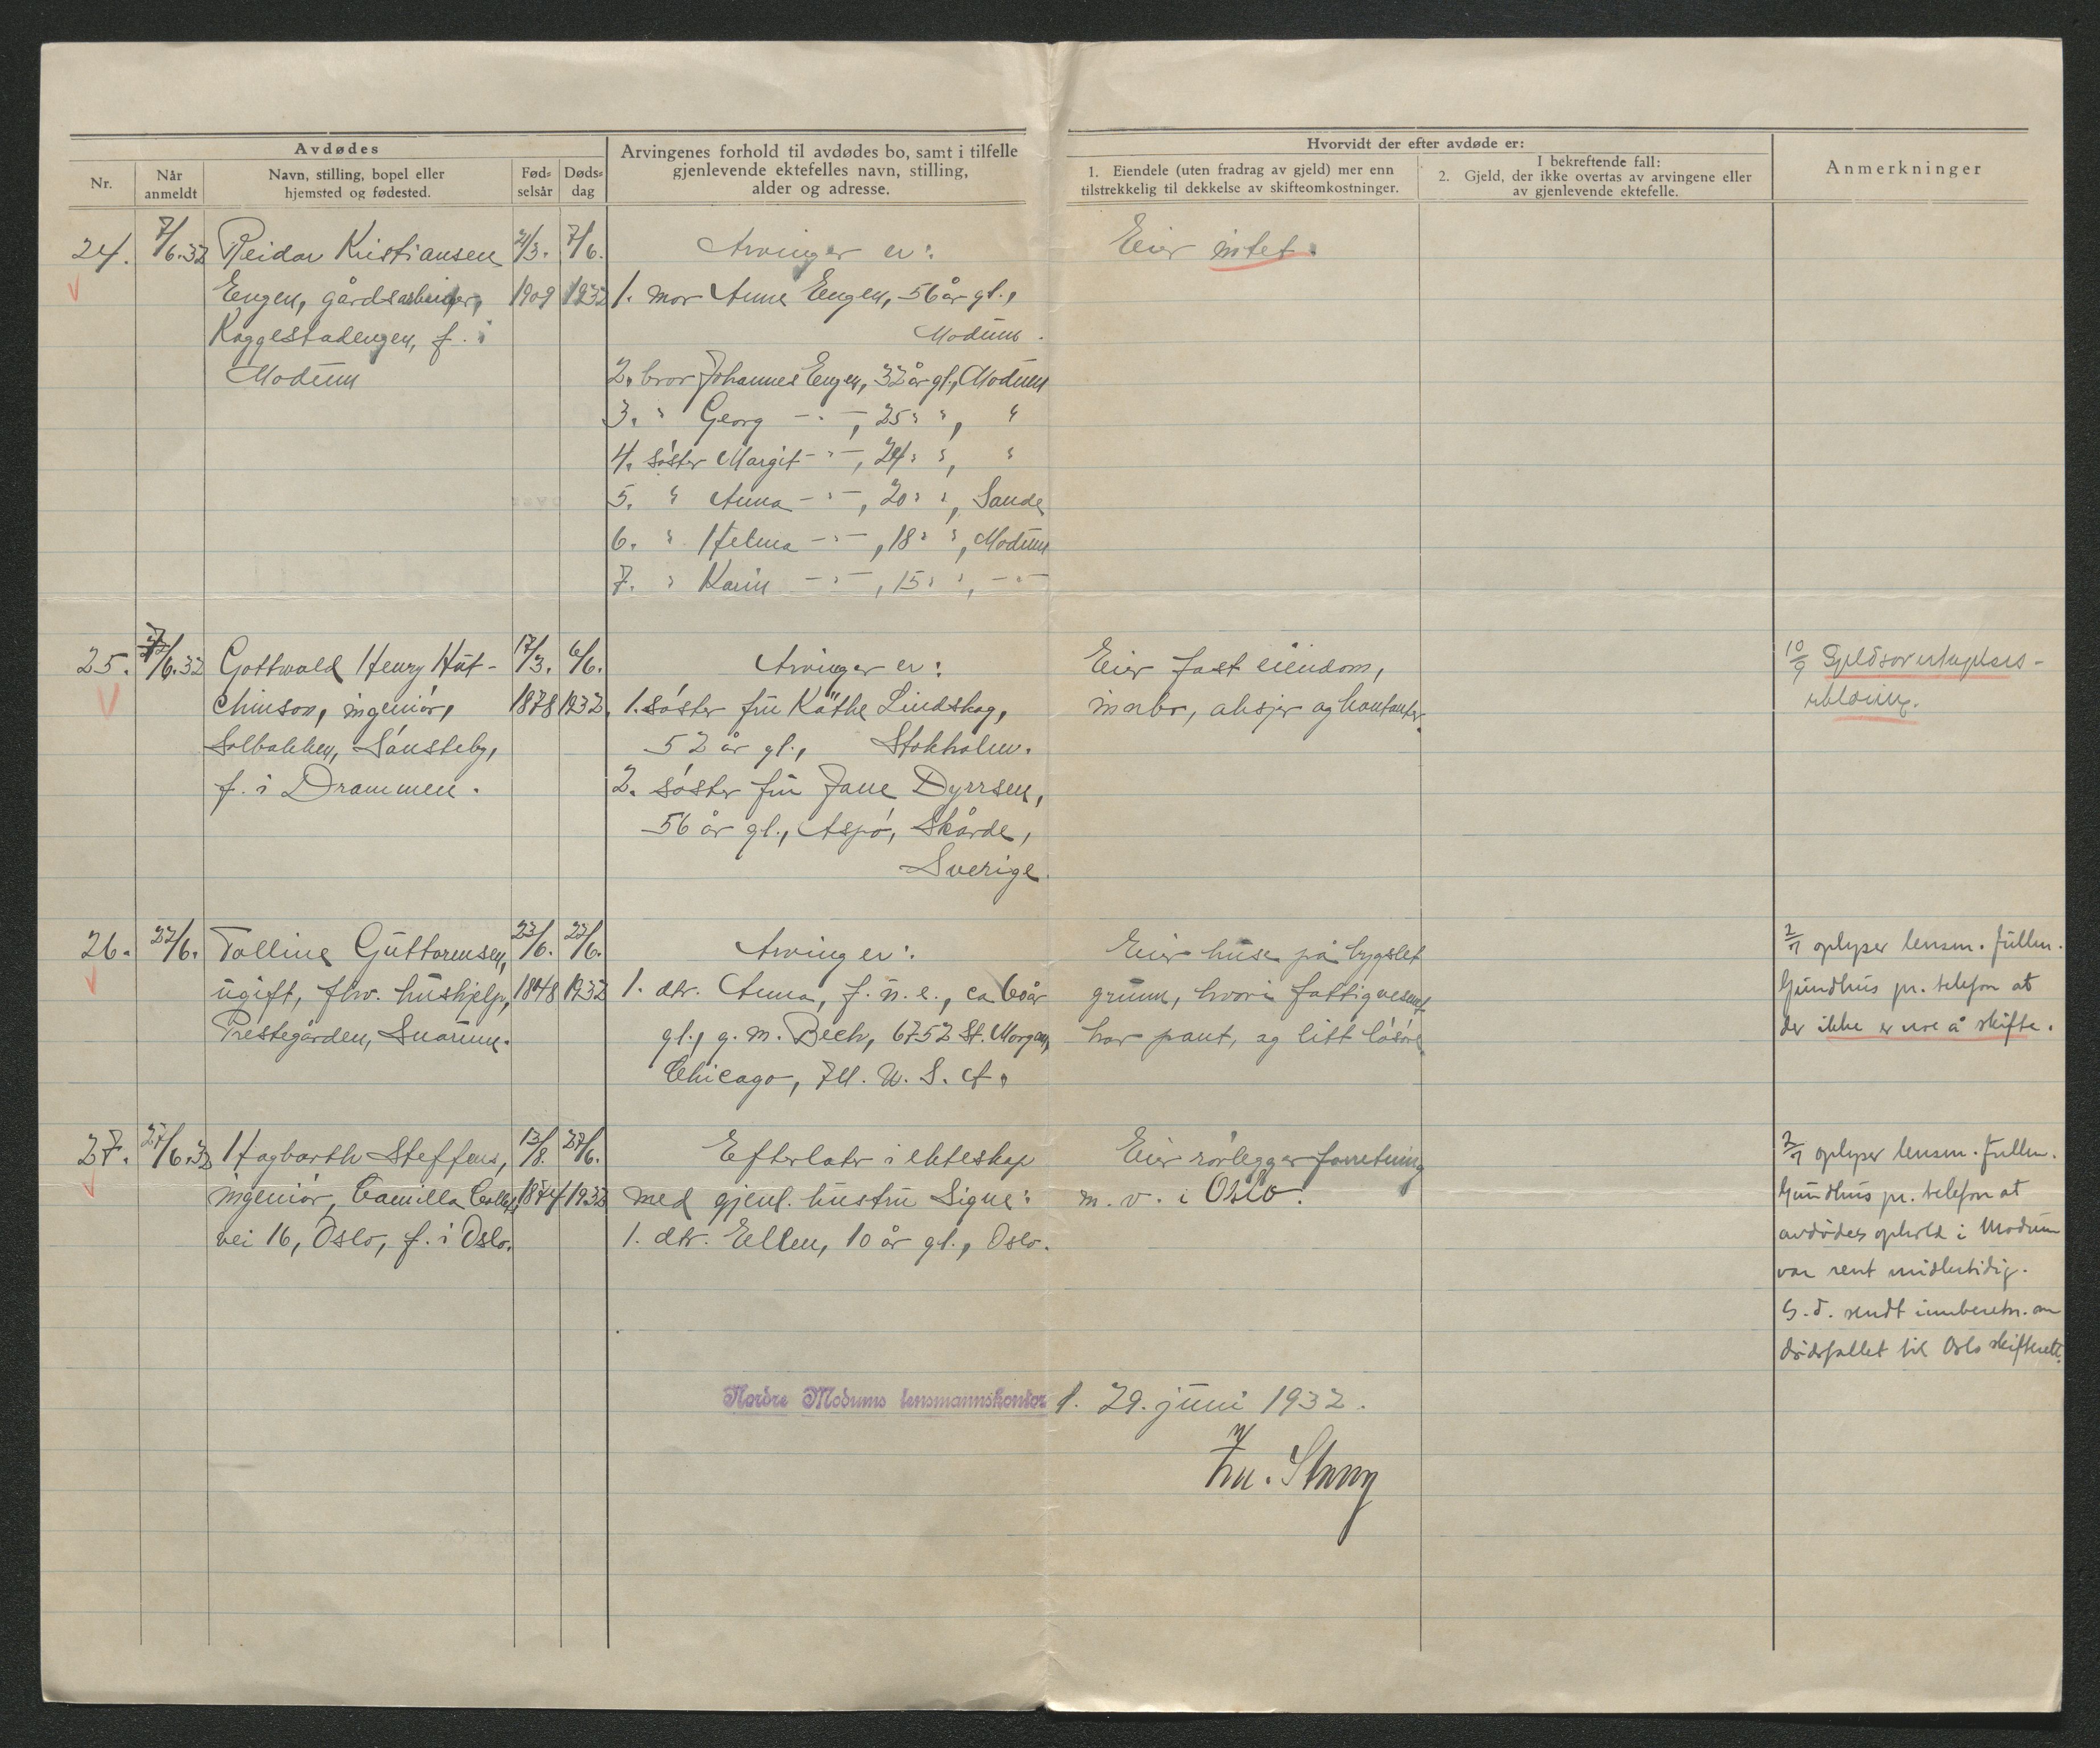 Avdødes
Arvingenes forhold til avdødes bo, samt i tilfelle
gjenlevende ektefelles navn, stilling,
alder og adresse.
Hvorvidt der efter avdøde er:
Anmerkninger
Nr.
Når
anmeldt
Navn, stilling, bopel eller
hjemsted og fødested.
Fød-
selsår
Døds-
dag
1. Eiendele (uten fradrag av gjeld) mer enn
tilstrekkelig til dekkelse av skifteomkostninger.
I bekreftende fall:
2. Gjeld, der ikke overtas av arvingene eller
av gjenlevende ektefelle.
24. 7/6.32 Reidar Kristiansen 21/3. 7/6. Arvinger er: Eier intet.
Engen, gårdsarbeider, 1909 1932 1. mor Anna Engen, 56 år gl.,
Kaggestadengen, f. i Modum.
Modum 2. bror Johannes Engen, 32 år gl., Modum
3. " Georg -"-, 25 " ", "
4. søster Margit -"-, 24 " ", "
5. " Anna -"-, 20 " ", Sande
6. " Helma -"-, 18 " ", Modum
7. " Karin -"-, 15 " ", -"-
25. /6.32 Gottwald Henry Hut- 17/3. 6/6. Arvinger er: Eier fast eiendom, 10/9 Gjeldsovertagelses-
chinson, ingeniør, 1878 1932. 1. søster fru Käthe Lindskog, innbo, aksjer og kontanter. erklæring.
Solbakken, Sønsteby, 52 år gl., Stokholm.
f. i Drammen. 2. søster fru Jane Dyrssen,
56 år gl., Aspö, Skårde,
Sverige.
26. 22/6. Talline Guttormsen, 23/6. 22/6. Arving er: Eier huse på bygslet 2/7 oplyser lensm. fullm.
ugift, fhv. hushjelp, 1848 1932 1. dtr. Anna, f. u. e., ca 60 år grunn, hvori fattigvesenet Gundhus pr. telefon at
Prestegården, Snarum. gl., g. m. Bech, 6752 St. Morgan, har pant, og litt løsøre. der ikke er noe å skifte.
Chicago, Ill. U. S. A.
27. 27/6.32 Hagbarth Steffens, 13/8. 27/6. Efterlater i ekteskap Eier rørleggerforretning 2/7 oplyser lensm. fullm.
ingeniør, Camilla Colletts 1874 1932 med gjenl. hustru Signe: m. v. i Oslo. Gundhus pr. telefon at
vei 16, Oslo, f. i Oslo. 1. dtr. Ellen, 10 år gl., Oslo. avdødes ophold i Modum
var rent midlertidig.
S. d. sendt innberetn. om
dødsfallet til Oslo skifterett.
Nordre Modums lensmannskontor d. 29. juni 1932.